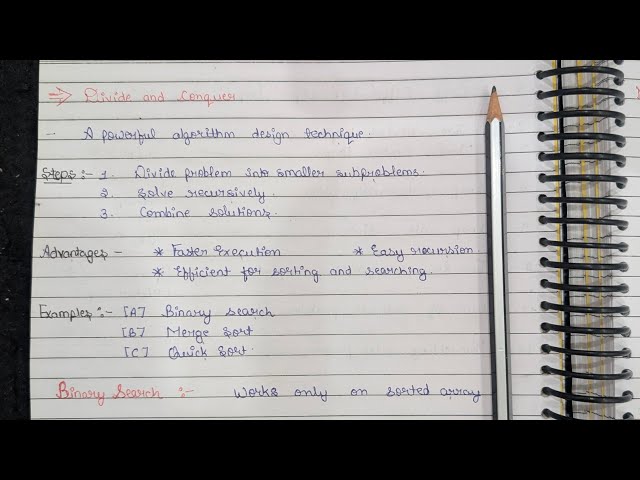 ⇒ Divide and Conquer
- A powerful algorithm design technique.
Steps :- 1. Divide problem into smaller subproblems.
2. Solve recursively.
3. Combine solutions.
Advantages - * Faster Execution * Easy recursion
* Efficient for sorting and searching.
Examples :- [A] Binary search
[B] Merge Sort
[C] Quick Sort.
Binary Search :- Works only on sorted array